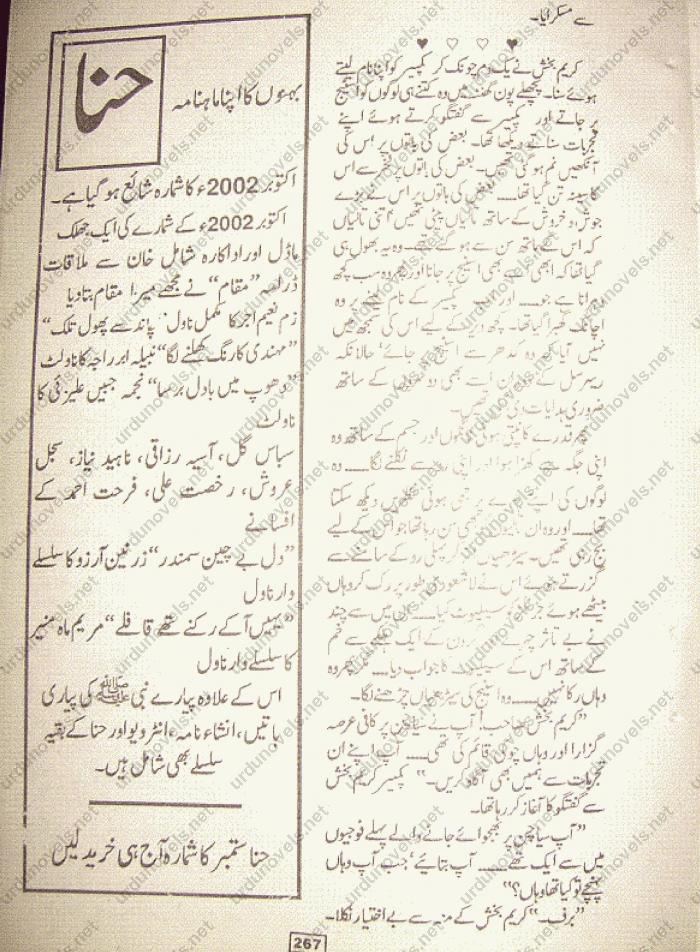 سے مسکرایا۔
کریم بخش نے یک دم چونک کر کمپیئر کو اپنا نام لیتے
ہوئے سنا۔ پچھلے پون گھنٹہ میں وہ کتنے ہی لوگوں کو اسٹیج
پر جاتے اور کمپیئر سے گفتگو کرتے ہوئے اپنے
تجربات سناتے دیکھا تھا۔ بعض کی باتوں پر اس کی
آنکھیں نم ہو گئی تھیں۔ بعض کی باتوں پر فخر سے اس
کا سینہ تن گیا تھا۔۔۔ بعض کی باتوں پر اس نے بڑے
جوش و خروش کے ساتھ تالیاں پیٹی تھیں، اتنی تالیاں
کہ اس کے ہاتھ سن سے ہو گئے تھے۔ وہ یہ بھول ہی
گیا تھا کہ ابھی اسے بھی اسٹیج پر جانا اور پھر وہ سب کچھ
دہرانا ہے جو۔۔۔ اور اب کمپیئر کے نام لینے پر وہ
اچانک گھبرا گیا تھا۔ کچھ دیر کے لیے اس کی سمجھ میں
نہیں آیا کہ وہ کدھر سے اسٹیج پر جائے، حالانکہ
ریہرسل کے دوران اسے بھی دوسروں کے ساتھ
ضروری ہدایات دی گئی تھیں۔
پھر قدرے کانپتی ہوئی ٹانگوں اور جسم کے ساتھ وہ
اپنی جگہ سے کھڑا ہوا اور اپنی رو سے نکلنے لگا۔۔۔ وہ
لوگوں کی اپنے چہرے پر جمی ہوئی نظریں دیکھ سکتا
تھا۔۔۔ اور وہ ان تالیوں کو بھی سن رہا تھا جو اس کے لیے
بج رہی تھیں۔ سیڑھیاں اتر کر پہلی رو کے سامنے سے
گزرتے ہوئے اس نے لاشعوری طور پر رک کر وہاں
بیٹھے ہوئے جرنلز کو سیلیوٹ کیا۔۔۔ ان میں سے چند
نے بے تاثر چہرے گردن کے ایک ہلکے سے خم
کے ساتھ اس کے سیلیوٹ کا جواب دیا۔۔۔ مگر پھر وہ
وہاں رکا نہیں۔۔۔ وہ اسٹیج کی سیڑھیاں چڑھنے لگا۔
”کریم بخش صاحب! آپ نے سیاچن پر کافی عرصہ
گزارا اور وہاں چوکی قائم کی تھی۔۔۔ آپ اپنے ان
تجربات سے ہمیں بھی آگاہ کریں۔“ کمپیئر کریم بخش
سے گفتگو کا آغاز کر رہا تھا۔
”آپ سیاچن پر بھجوائے جانے والے پہلے فوجیوں
میں سے ایک تھے۔۔۔ آپ بتائیے، جب آپ وہاں
پہنچے تو کیا تھا وہاں؟“
”برف۔“ کریم بخش کے منہ سے بے اختیار نکلا۔
حنا
بہنوں کا اپنا ماہنامہ
اکتوبر 2002ء کا شمارہ شائع ہو گیا ہے۔
اکتوبر 2002ء کے شمارے کی ایک جھلک
ماڈل اور اداکارہ شامل خان سے ملاقات
ڈرامہ ”مقام“ نے مجھے میرا مقام بتا دیا
نعیم کا مکمل ناول ”چاند سے پھول تلک“
”مہندی کا رنگ کھلنے لگا“ نبیلہ ابر راجہ کا ناولٹ
”دھوپ میں بادل برسا“ نجمہ جبیں علیزئی کا
ناولٹ
سباس گل، آسیہ رزاقی، ناہید نیاز، سجل
عروش، رخصت علی، فرحت احمد کے
افسانے
”دل بے چین سمندر“ زرنین آرزو کا سلسلے
وار ناول
”یہیں آکے رکنے تھے قافلے“ مریم ماہ منیر
کا سلسلے وار ناول
اس کے علاوہ پیارے نبی ﷺ کی پیاری
باتیں، انشاء نامہ، انٹرویو اور حنا کے بقیہ
سلسلے بھی شامل ہیں۔
حنا ستمبر کا شمارہ آج ہی خرید لیں
267
urdunovels.net